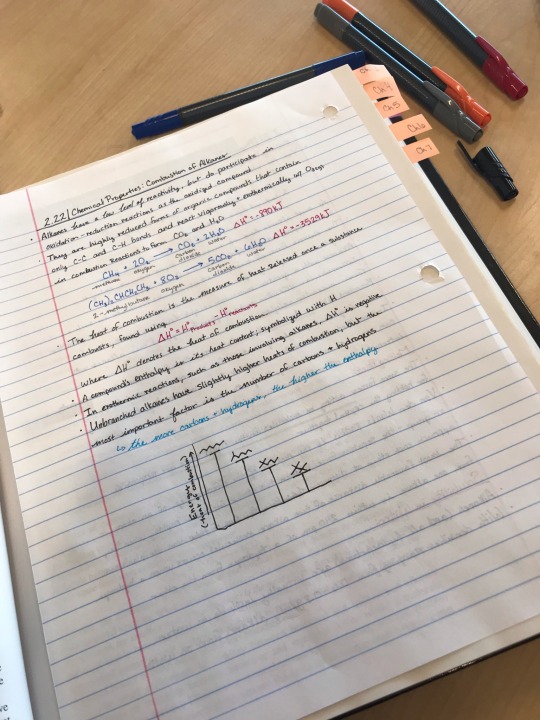 Ch 4
Ch 5
Ch 6
Ch 7
2.22 | Chemical Properties: Combustion of Alkanes
· Alkanes have a low level of reactivity, but do participate in
oxidation-reduction reactions as the oxidized compound
· They are highly reduced forms of organic compounds that contain
only C-C and C-H bonds and react vigorously + exothermically w/ Oxygen
in combustion reactions to form CO₂ and H₂O
CH₄ + 2O₂ → CO₂ + 2H₂O ΔH° = -890 kJ
methane oxygen carbon dioxide water
(CH₃)₂CHCH₂CH₃ + 8O₂ → 5CO₂ + 6H₂O ΔH° = -3529 kJ
2-methylbutane oxygen carbon dioxide water
· The heat of combustion is the measure of heat released once a substance
combusts, found using
ΔH° = H°products - H°reactants
where ΔH° denotes the heat of combustion
· A compound's enthalpy is its heat content; symbolized with H
· In exothermic reactions, such as those involving alkanes, ΔH° is negative
· Unbranched alkanes have slightly higher heats of combustion, but the
most important factor is the number of carbons + hydrogens
↳ the more carbons + hydrogens, the higher the enthalpy
Energy
(heat of combustion)